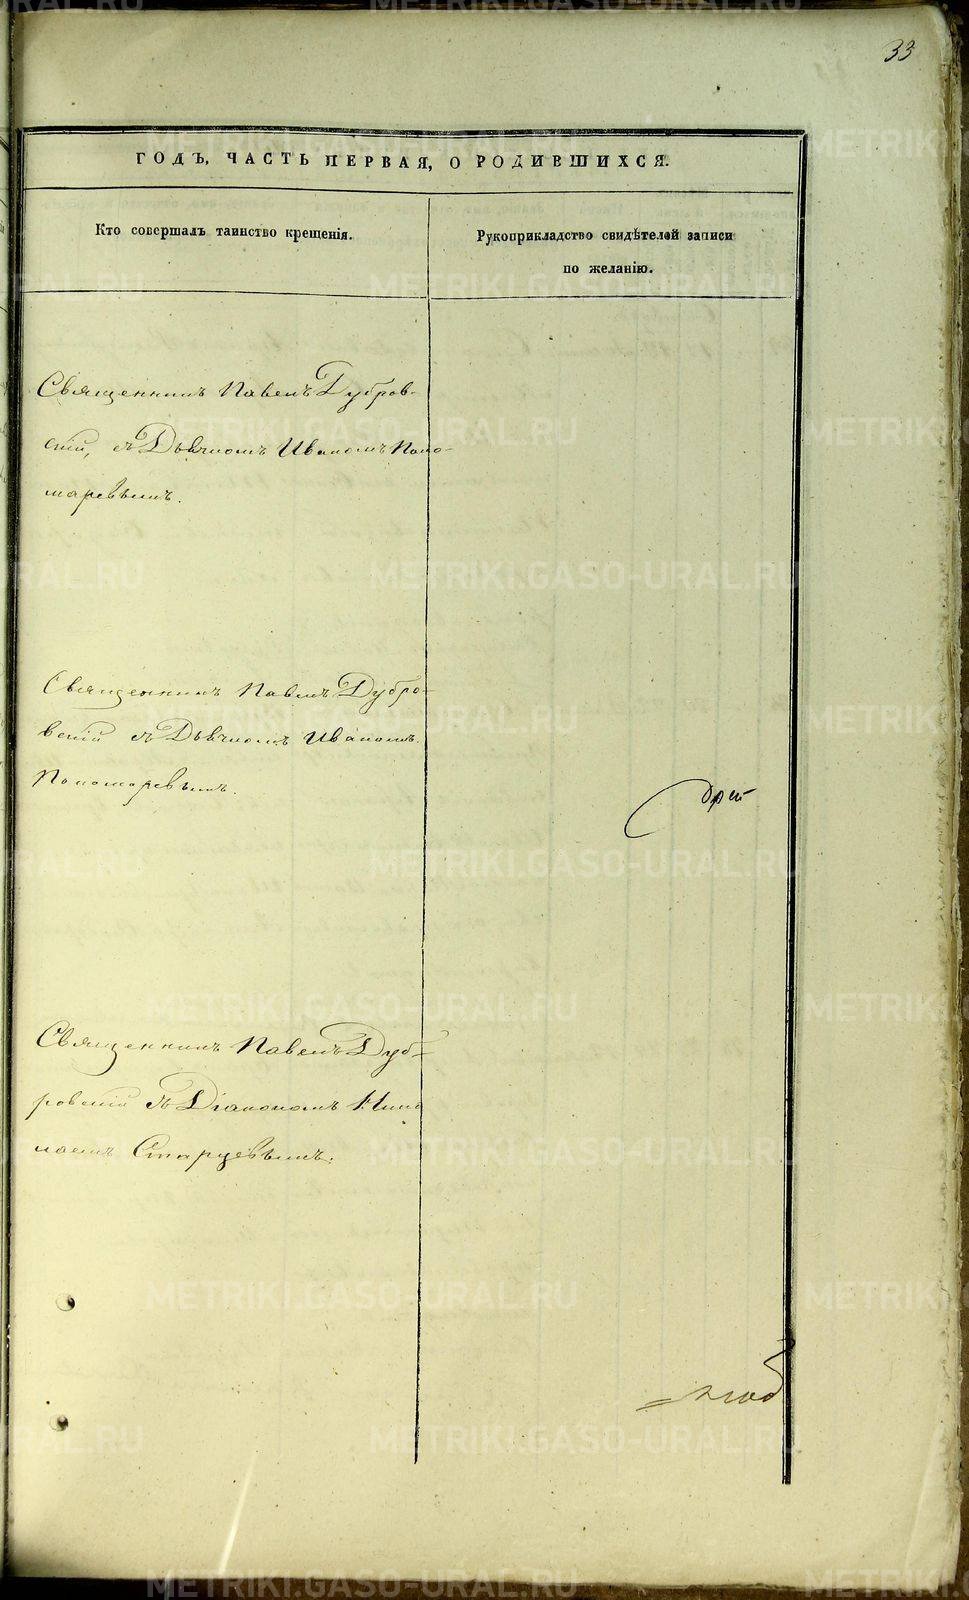 33
ГОДЪ, ЧАСТЬ ПЕРВАЯ, О РОДИВШИХСЯ.
Кто совершалъ таинство крещенія.
Рукоприкладство свидѣтелей записи
по желанію.
Священникъ Павелъ Дубров-
скій, съ Дьячкомъ Иваномъ Поно-
маревымъ.
Священникъ Павелъ Дубро-
вскій съ Дьячкомъ Иваномъ
Пономаревымъ.
Священникъ Павелъ Дуб-
ровскій съ Діакономъ Нико
лаемъ Старцевымъ.
METRIKI.GASO-URAL.RU